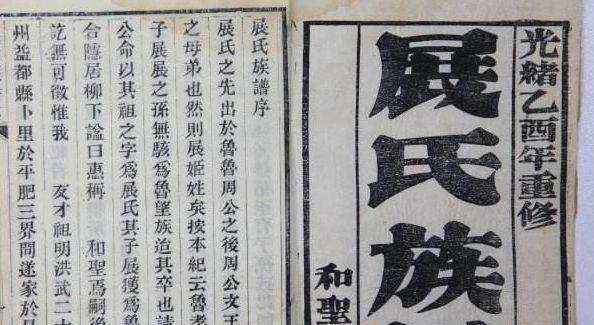 光緒乙酉年重修
展氏族
和聖
展氏族譜序
展氏之先出於魯魯周公之後周公文王
之母弟也然則展姬姓矣按本紀云魯孝
子展展之孫無駭為魯望族迨其卒也請
公命以其祖之字為展氏其子展獲為魯
合隱居柳下諡曰惠稱 和聖焉嗣後
訖無可徵惟我 友才祖明洪武二十
州益都縣卜里於平肥三界間遂家於